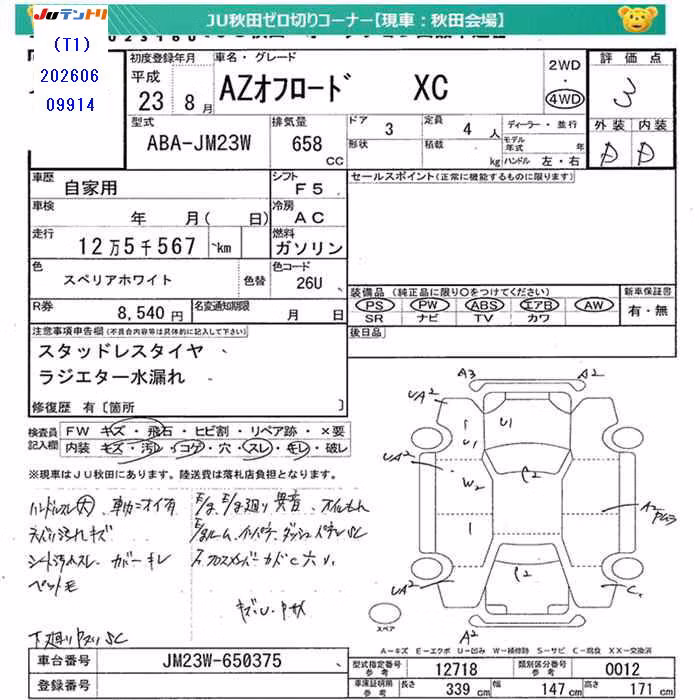 JUテントリ
JU秋田ゼロ切りコーナー【現車：秋田会場】
（T1）
202606
09914
初度登録年月
平成
23 8月
車名・グレード
AZオフロード XC
2WD
・
4WD
評価点
3
型式
ABA-JM23W
排気量
658
CC
ドア
3
形状
定員
4 人
積載
kg
ディーラー・並行
モデル年式 年
ハンドル 左・右
外装 内装
D D
車歴
自家用
シフト
F5
セールスポイント(正常に機能するものに限ります)
車検
年 月( 日)
冷房
AC
走行
12万5千567 km
燃料
ガソリン
色
スペリアホワイト
色替
色コード
26U
装備品 (純正品に限り○をつけてください)
PS PW ABS エアB AW
SR ナビ TV カワ
新車保証書
有・無
R券
8,540円
名変通知期限
月 日
後日品
注意事項申告欄(不具合内容等は具体的に記入して下さい)
スタッドレスタイヤ
ラジエター水漏れ
修復歴 有〔箇所 〕
検査員記入欄
FW キズ・飛石・ヒビ割・リペア跡・×要
内装 キズ・汚レ・コゲ・穴・スレ・キレ・破レ
※現車はJU秋田にあります。陸送費は落札店負担となります。
ハンドルスレ(大)、車内ニオイ有
シート汚レスレ カバーキレ
ペット毛
下廻りサビSC
E/g、E/g廻り異音 オイルもれ
キズU・サビ
A3 A2
UA2 U1
U1
UA2 W2 P2
A2
UA2 P2 C1
A2
スペア
A－キズ E－エクボ U－凹み W－補修跡 S－サビ C－腐食 XX－交換済
車台番号
JM23W-650375
登録番号
型式指定番号
参考
12718
類別区分番号
参考
0012
車庫証明用
参考
長さ 339 cm 幅 147 cm 高さ 171 cm